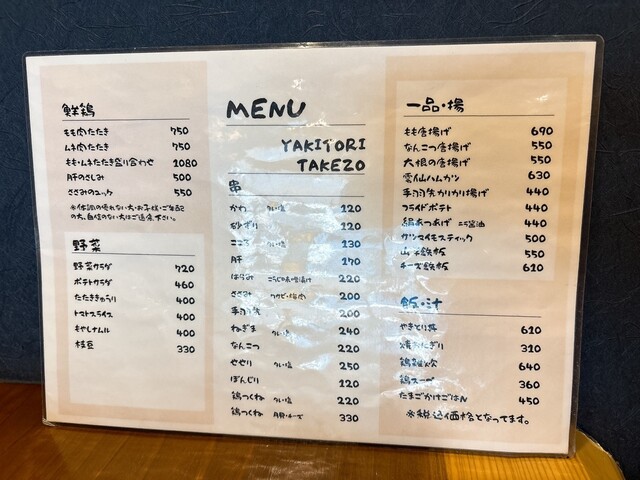 鮮鶏
もも肉たたき 750
ムネ肉たたき 750
もも・ムネたたき盛り合わせ 1080
肝のさしみ 500
ささみのユッケ 550
※体調の優れない方・お子様・ご年配
の方、自信のない方はご遠慮下さい。
野菜
野菜サラダ 720
ポテトサラダ 460
たたききゅうり 400
トマトスライス 400
もやしナムル 400
枝豆 330
MENU
YAKITORI
TAKEZO
串
かわ タレ・塩 120
砂ずり 120
こころ タレ・塩 130
肝 170
はらみ にんにく味噌漬け 220
ささみ ワサビ・梅肉 200
手羽先 200
ねぎま タレ・塩 240
なんこつ 220
せせり タレ・塩 250
ぼんじり 120
鶏つくね タレ・塩 220
鶏つくね 月見・チーズ 330
一品・揚
もも唐揚げ 690
なんこつ唐揚げ 550
大根の唐揚げ 550
雲仙ハムカツ 630
手羽先カリカリ揚げ 440
フライドポテト 440
絹あつあげ ニラ醤油 440
サツマイモスティック 500
山芋鉄板 550
チーズ鉄板 610
飯・汁
やきとり丼 610
焼おにぎり 310
鶏雑炊 640
鶏スープ 360
たまごかけごはん 450
※税込価格となってます。